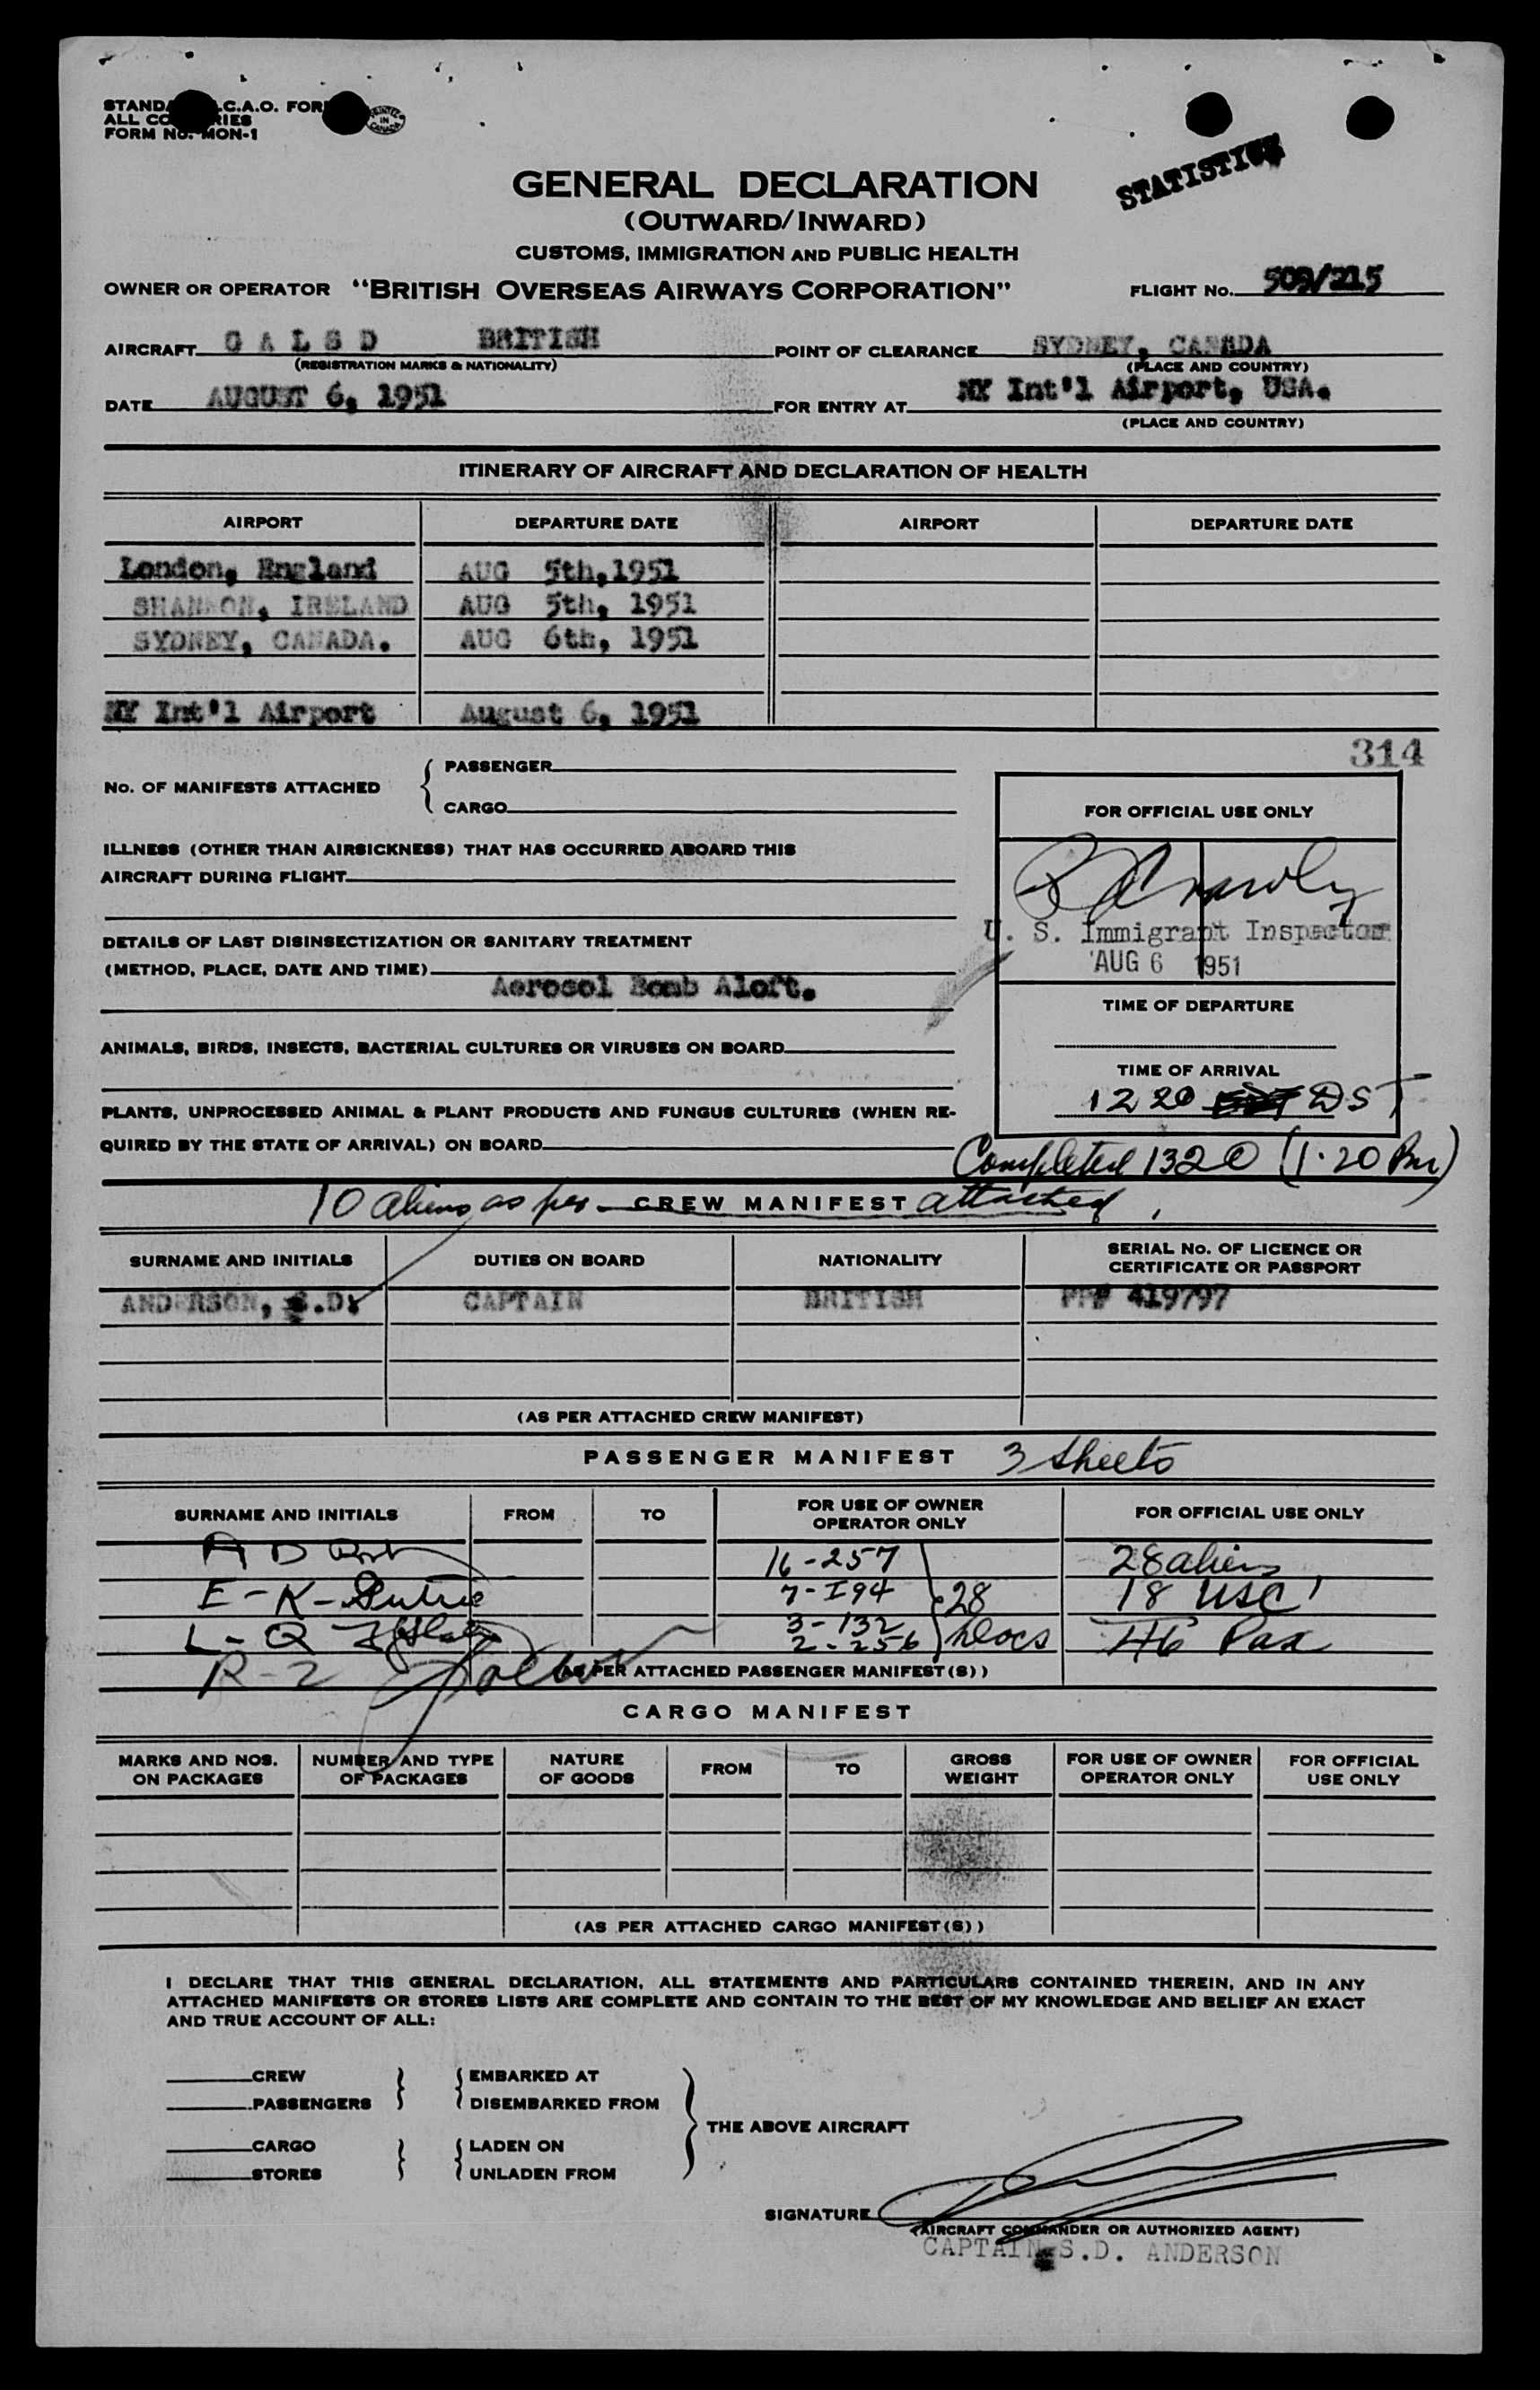 C.A.O.
ALL
FORM No. MON-1
PRINTED IN CANADA
STATISTICS
GENERAL DECLARATION
(OUTWARD/INWARD)
CUSTOMS, IMMIGRATION AND PUBLIC HEALTH
OWNER OR OPERATOR "BRITISH OVERSEAS AIRWAYS CORPORATION" FLIGHT No. 509/215
AIRCRAFT G A L S D BRITISH POINT OF CLEARANCE SYDNEY, CANADA
(REGISTRATION MARKS & NATIONALITY) (PLACE AND COUNTRY)
DATE AUGUST 6, 1951 FOR ENTRY AT NY Int'l Airport, USA.
(PLACE AND COUNTRY)
ITINERARY OF AIRCRAFT AND DECLARATION OF HEALTH
AIRPORT DEPARTURE DATE AIRPORT DEPARTURE DATE
London, England AUG 5th, 1951
SHANNON, IRELAND AUG 5th, 1951
SYDNEY, CANADA. AUG 6th, 1951
NY Int'l Airport August 6, 1951
314
No. OF MANIFESTS ATTACHED { PASSENGER
CARGO
FOR OFFICIAL USE ONLY
ILLNESS (OTHER THAN AIRSICKNESS) THAT HAS OCCURRED ABOARD THIS
AIRCRAFT DURING FLIGHT
U. S. Immigrant Inspector
AUG 6 1951
DETAILS OF LAST DISINSECTIZATION OR SANITARY TREATMENT
(METHOD, PLACE, DATE AND TIME)
Aerosol Bomb Aloft.
TIME OF DEPARTURE
ANIMALS, BIRDS, INSECTS, BACTERIAL CULTURES OR VIRUSES ON BOARD
TIME OF ARRIVAL
1220 DST
PLANTS, UNPROCESSED ANIMAL & PLANT PRODUCTS AND FUNGUS CULTURES (WHEN RE-
QUIRED BY THE STATE OF ARRIVAL) ON BOARD
Completed 1320 (1.20 Pm)
10 aliens as per CREW MANIFEST attached
SURNAME AND INITIALS DUTIES ON BOARD NATIONALITY SERIAL No. OF LICENCE OR
CERTIFICATE OR PASSPORT
ANDERSON, S.D. CAPTAIN BRITISH PP# 419797
(AS PER ATTACHED CREW MANIFEST)
PASSENGER MANIFEST 3 Sheets
SURNAME AND INITIALS FROM TO FOR USE OF OWNER
OPERATOR ONLY FOR OFFICIAL USE ONLY
A D 16-257 28 aliens
E-K- 7-I94 28 18 USC
L-Q 3-132 Docs 46 Pax
2-256
R-Z
(AS PER ATTACHED PASSENGER MANIFEST(S))
CARGO MANIFEST
MARKS AND NOS.
ON PACKAGES NUMBER AND TYPE
OF PACKAGES NATURE
OF GOODS FROM TO GROSS
WEIGHT FOR USE OF OWNER
OPERATOR ONLY FOR OFFICIAL
USE ONLY
(AS PER ATTACHED CARGO MANIFEST(S))
I DECLARE THAT THIS GENERAL DECLARATION, ALL STATEMENTS AND PARTICULARS CONTAINED THEREIN, AND IN ANY
ATTACHED MANIFESTS OR STORES LISTS ARE COMPLETE AND CONTAIN TO THE BEST OF MY KNOWLEDGE AND BELIEF AN EXACT
AND TRUE ACCOUNT OF ALL:
CREW EMBARKED AT
PASSENGERS DISEMBARKED FROM
THE ABOVE AIRCRAFT
CARGO LADEN ON
STORES UNLADEN FROM
SIGNATURE
(AIRCRAFT COMMANDER OR AUTHORIZED AGENT)
CAPTAIN S.D. ANDERSON